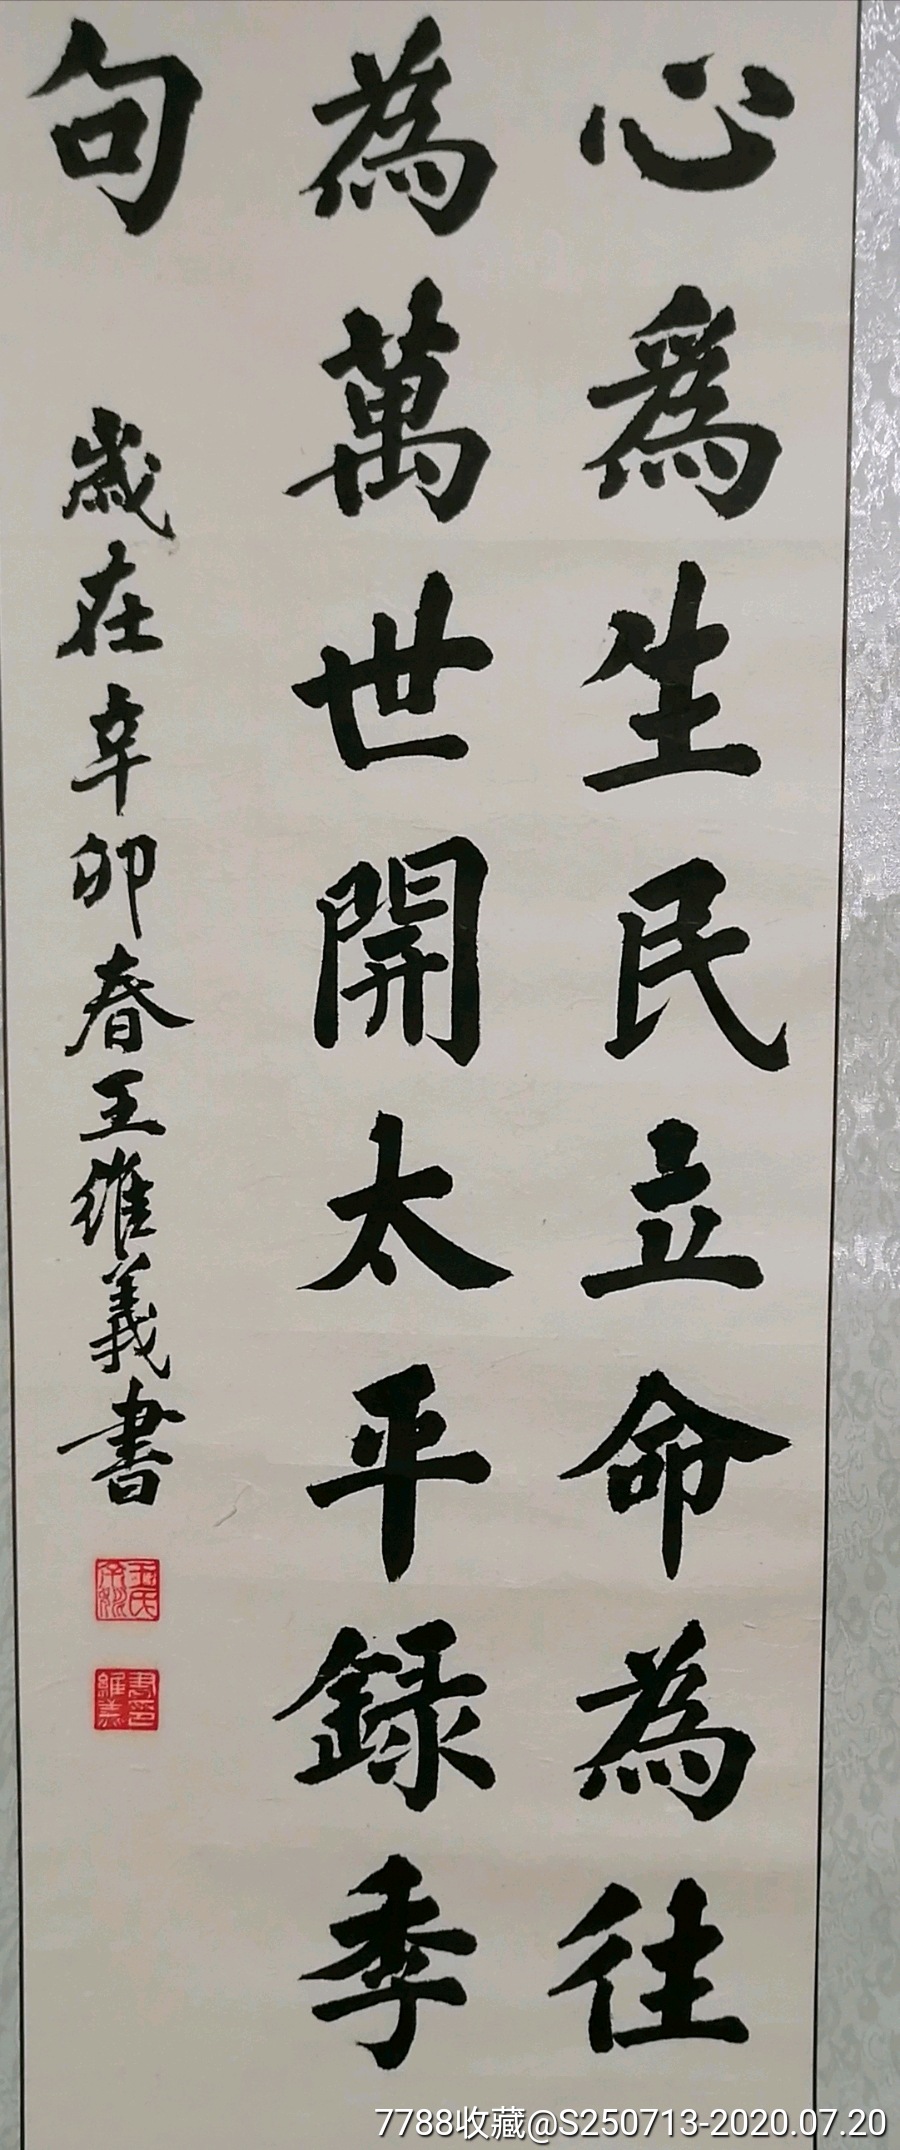 心為生民立命為往
為萬世開太平録季
句
歲在辛卯春王維義書
7788收藏@S250713-2020.07.20